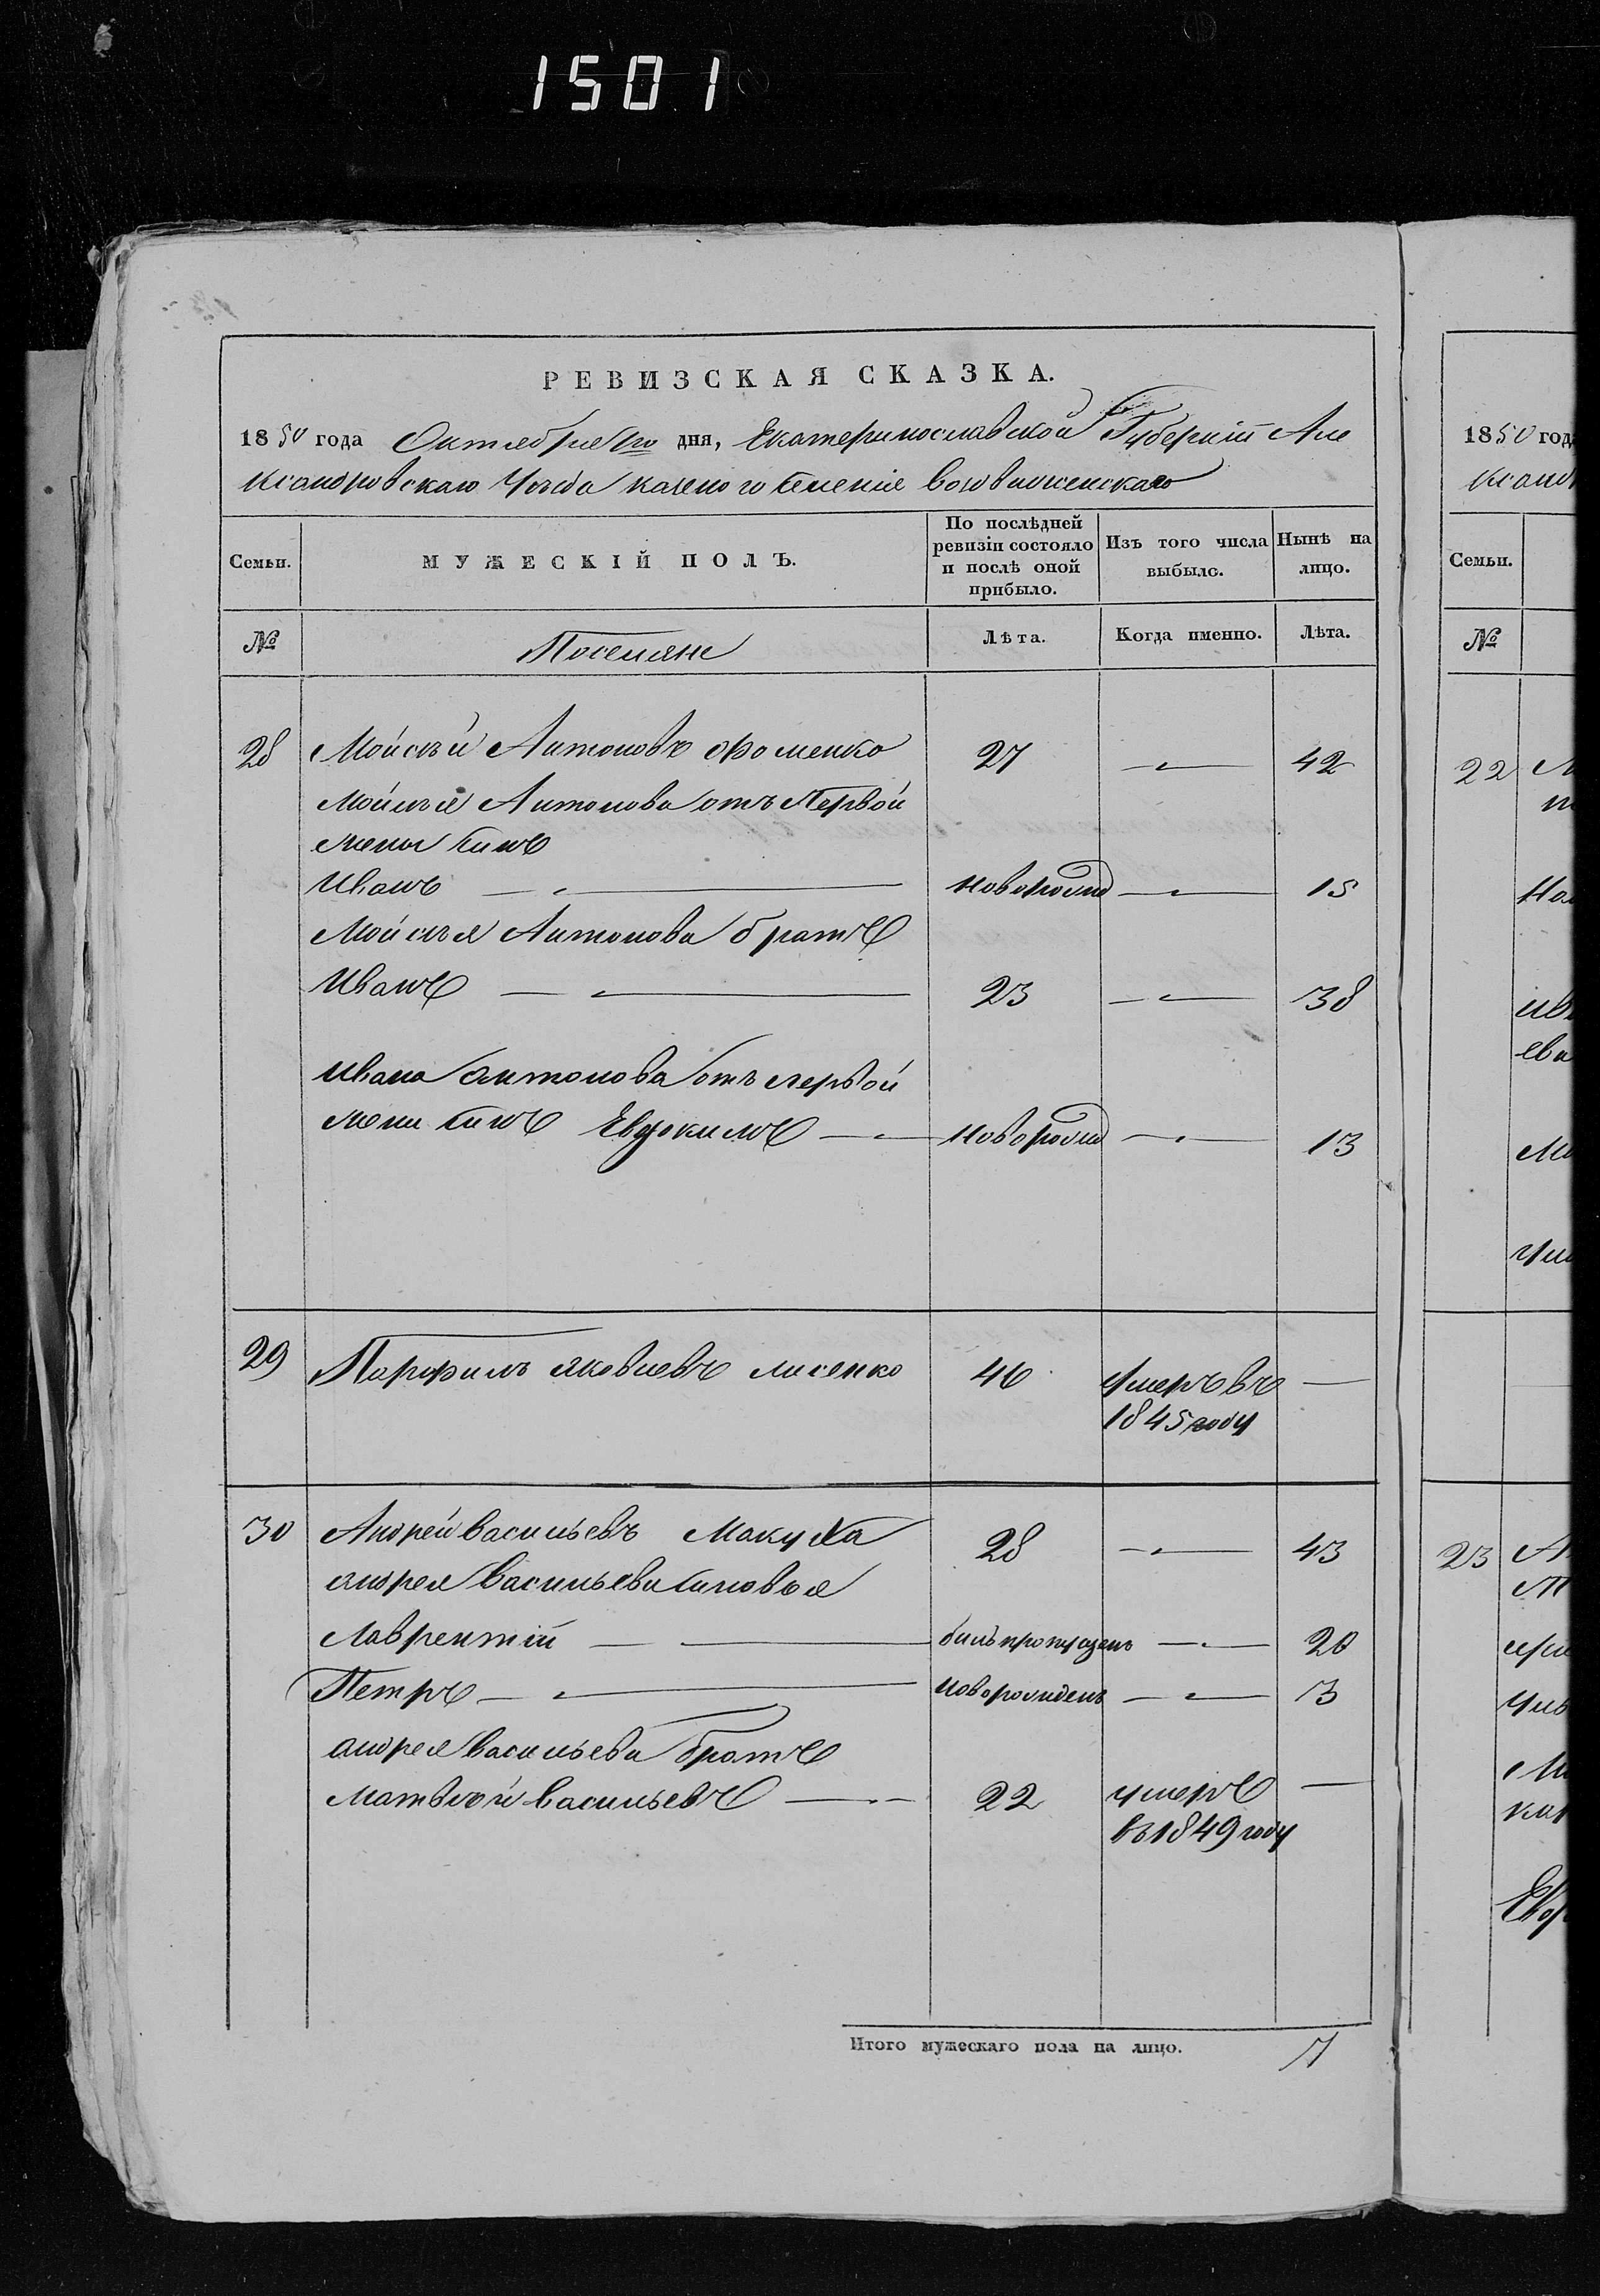 1501
РЕВИЗСКАЯ СКАЗКА.
1850 года Октября дня, Екатеринославской Губерніи Але
ксандровскаго Уезда казеного селенія Воздвиженскаго
Семьи. МУЖЕСКІЙ ПОЛЪ. По послѣдней ревизіи состояло и послѣ оной прибыло. Изъ того числа выбыло. Нынѣ на лицо.
№ Поселяне Лѣта. Когда именно. Лѣта.
28 Мойсѣй Антоновъ Фоменко 27 — 42
Мойсѣя Антонова отъ Первой
жены синъ
Иванъ — новорожд — 15
Мойсѣя Антонова братъ
Иванъ — 23 — 38
Ивана Антонова отъ первой
жени синъ Евдокимъ — новорожд — 13
29 Парфилъ Яковлевъ Лисенко 46 Умеръ въ —
1845 году
30 Андрей Васильевъ Макуха 28 — 43
Андрея Васильева синовья
Лаврентій — билъ пропущенъ — 20
Петръ — новорожденъ — 3
Андрея Васильева братъ
Матвѣй Васильевъ — 22 умеръ —
въ 1849 году
Итого мужескаго пола на лицо. 7
1850 год
ксанд
Семьи.
№
22
23